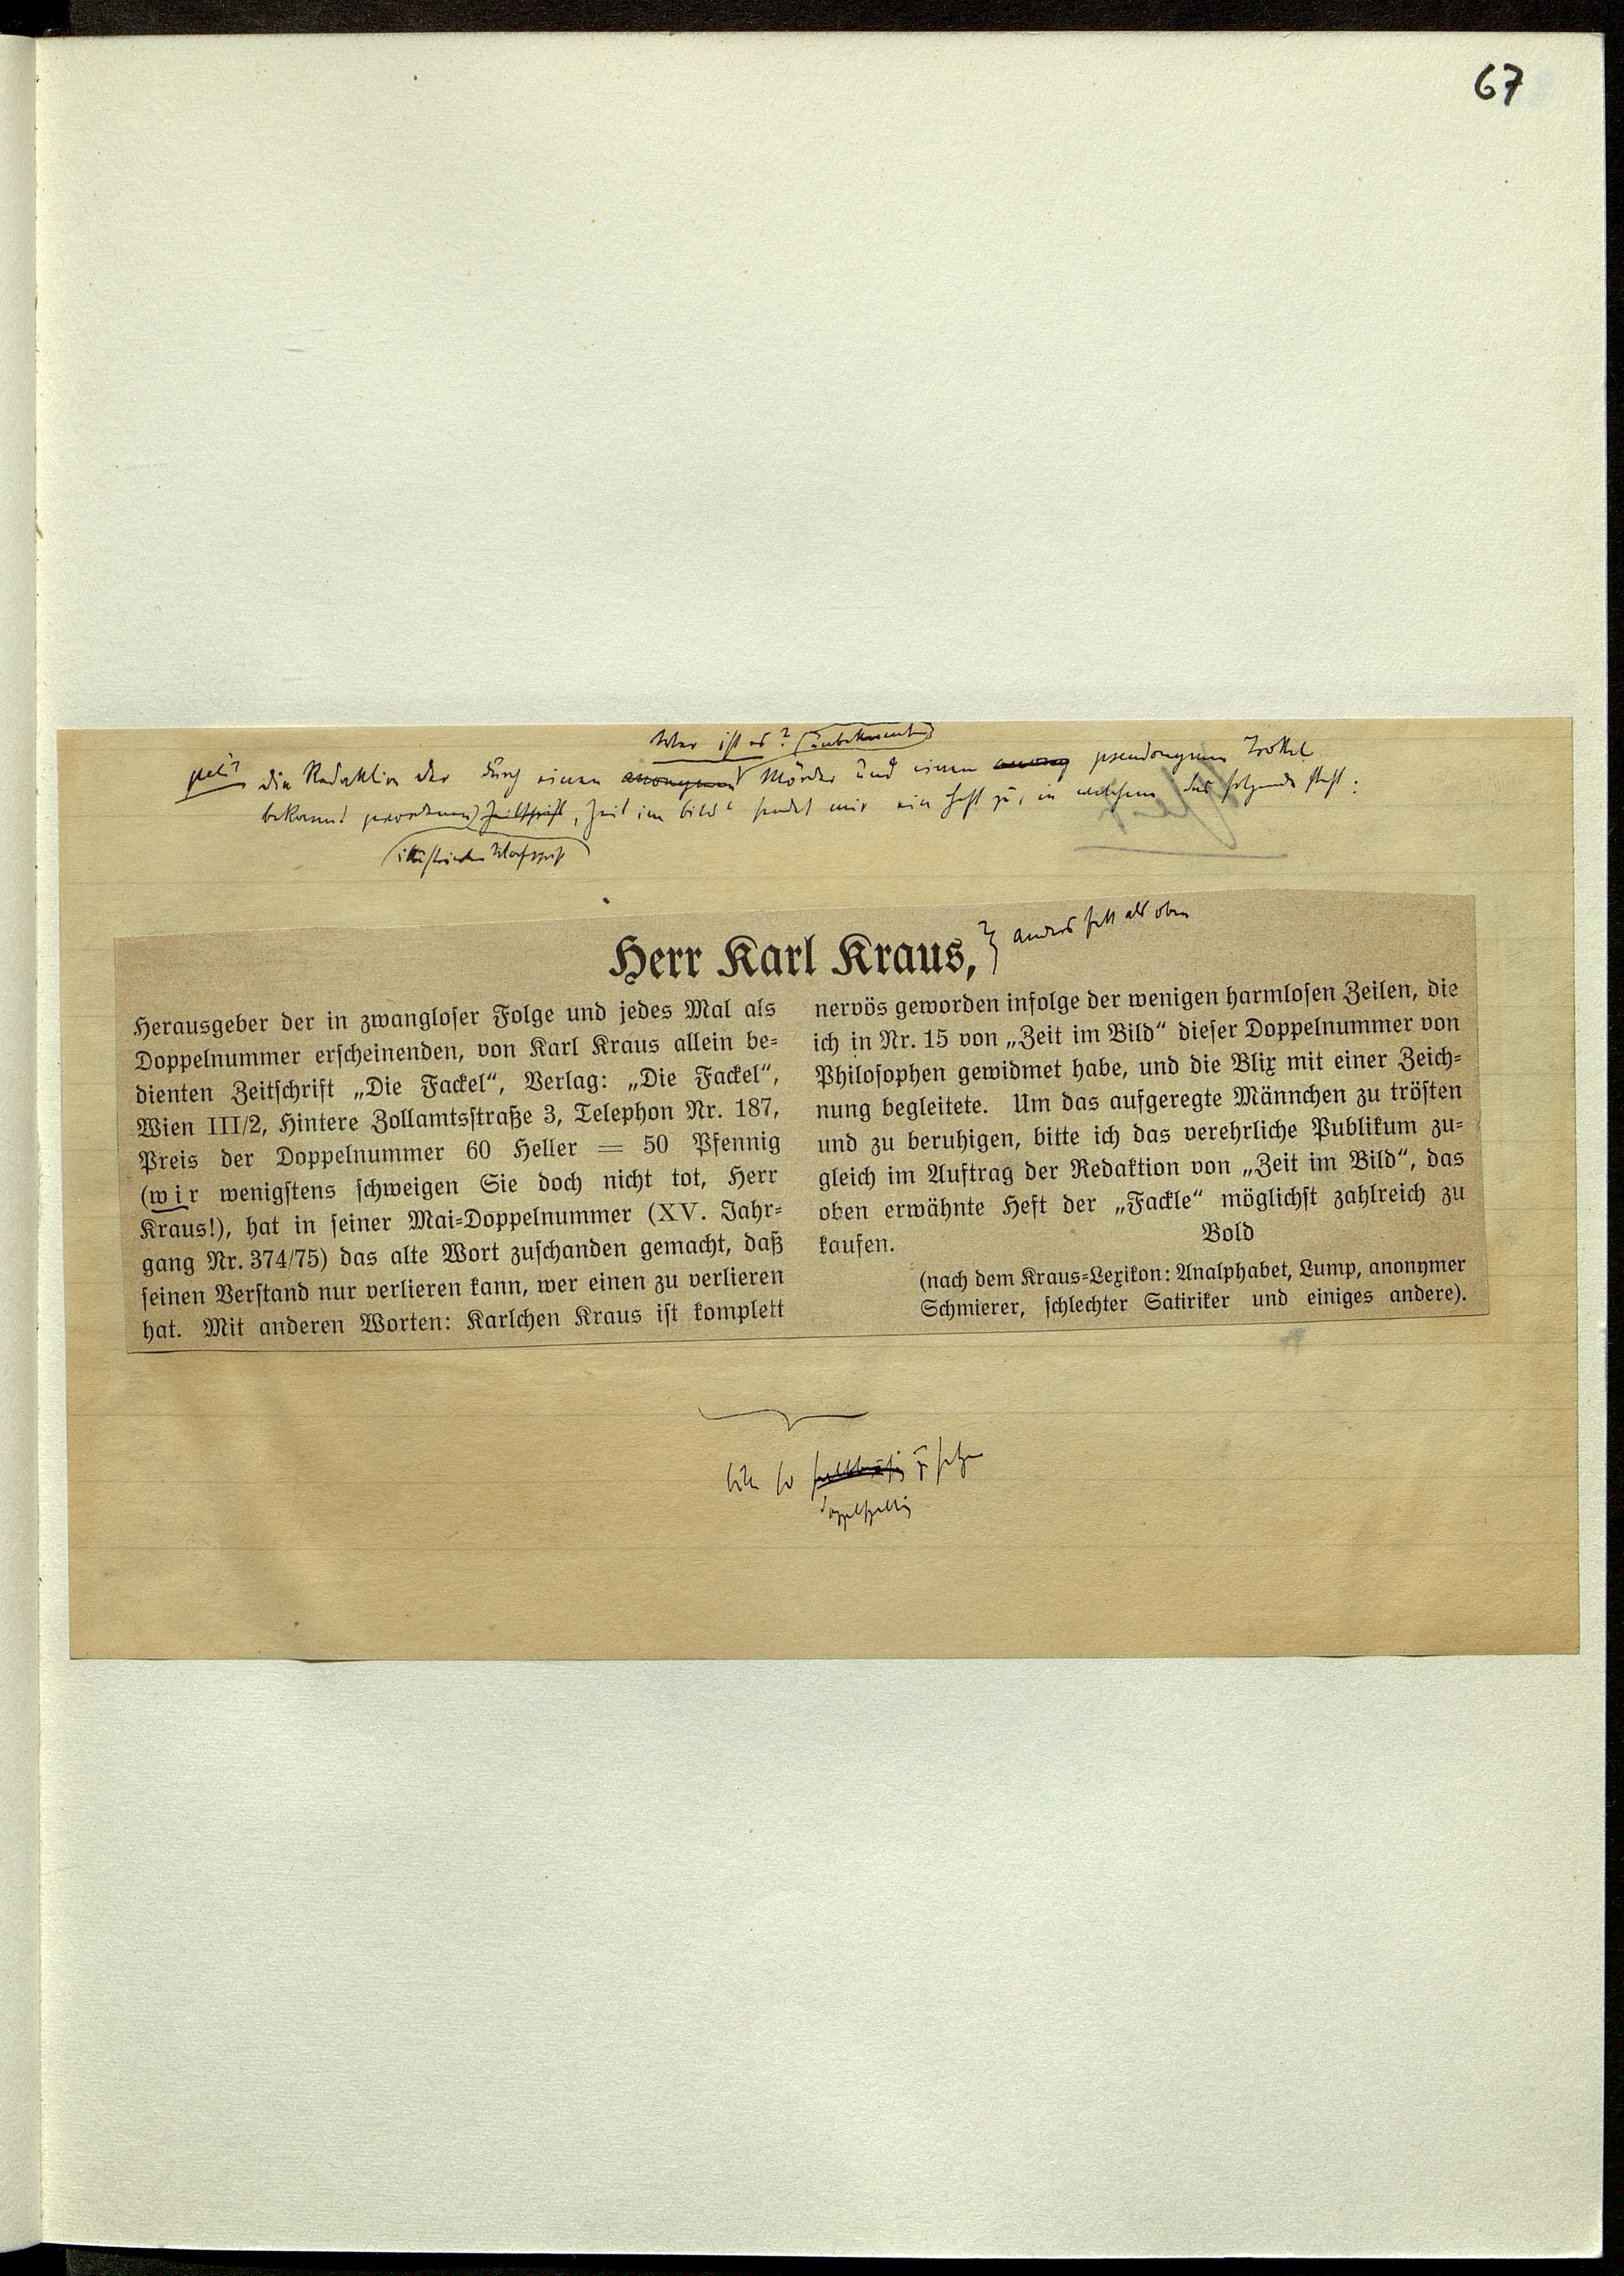 67
Wer ist es? unbekannten
petit Die Redaktion der durch einen anonymen Mörder und einen anony pseudonymen Trottel
bekannt gewordenen Zeitschrift „Zeit im Bild“ sendet mir ein Heft zu, in welchem das folgende steht:
illustrierten Wochenschrift
Herr Karl Kraus,
anders fett als oben
Herausgeber der in zwangloser Folge und jedes Mal als
Doppelnummer erscheinenden, von Karl Kraus allein be-
dienten Zeitschrift „Die Fackel“, Verlag: „Die Fackel“,
Wien III/2, Hintere Zollamtsstraße 3, Telephon Nr. 187,
Preis der Doppelnummer 60 Heller = 50 Pfennig
(wir wenigstens schweigen Sie doch nicht tot, Herr
Kraus!), hat in seiner Mai-Doppelnummer (XV. Jahr-
gang Nr. 374/75) das alte Wort zuschanden gemacht, daß
seinen Verstand nur verlieren kann, wer einen zu verlieren
hat. Mit anderen Worten: Karlchen Kraus ist komplett
nervös geworden infolge der wenigen harmlosen Zeilen, die
ich in Nr. 15 von „Zeit im Bild“ dieser Doppelnummer von
Philosophen gewidmet habe, und die Blix mit einer Zeich-
nung begleitete. Um das aufgeregte Männchen zu trösten
und zu beruhigen, bitte ich das verehrliche Publikum zu-
gleich im Auftrag der Redaktion von „Zeit im Bild“, das
oben erwähnte Heft der „Fackle“ möglichst zahlreich zu
kaufen.
Bold
(nach dem Kraus-Lexikon: Analphabet, Lump, anonymer
Schmierer, schlechter Satiriker und einiges andere).
bitte so zu setzen
doppelspaltig